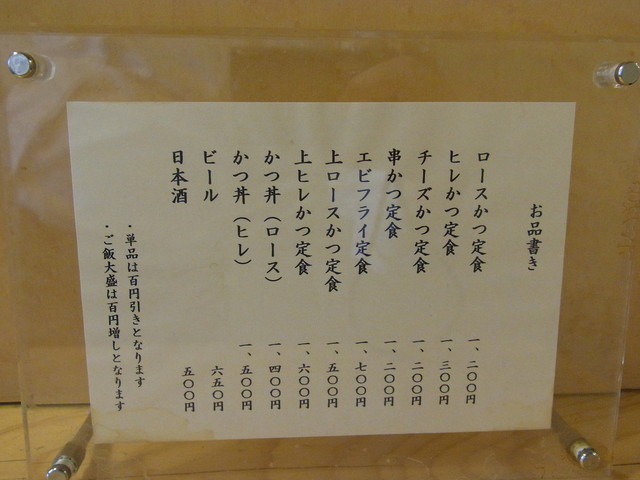 お品書き
ロースかつ定食 一、二〇〇円
ヒレかつ定食 一、三〇〇円
チーズかつ定食 一、二〇〇円
串かつ定食 一、二〇〇円
エビフライ定食 一、七〇〇円
上ロースかつ定食 一、五〇〇円
上ヒレかつ定食 一、六〇〇円
かつ丼(ロース) 一、四〇〇円
かつ丼(ヒレ) 一、五〇〇円
ビール 六五〇円
日本酒 五〇〇円
・単品は百円引きとなります
・ご飯大盛は百円増しとなります